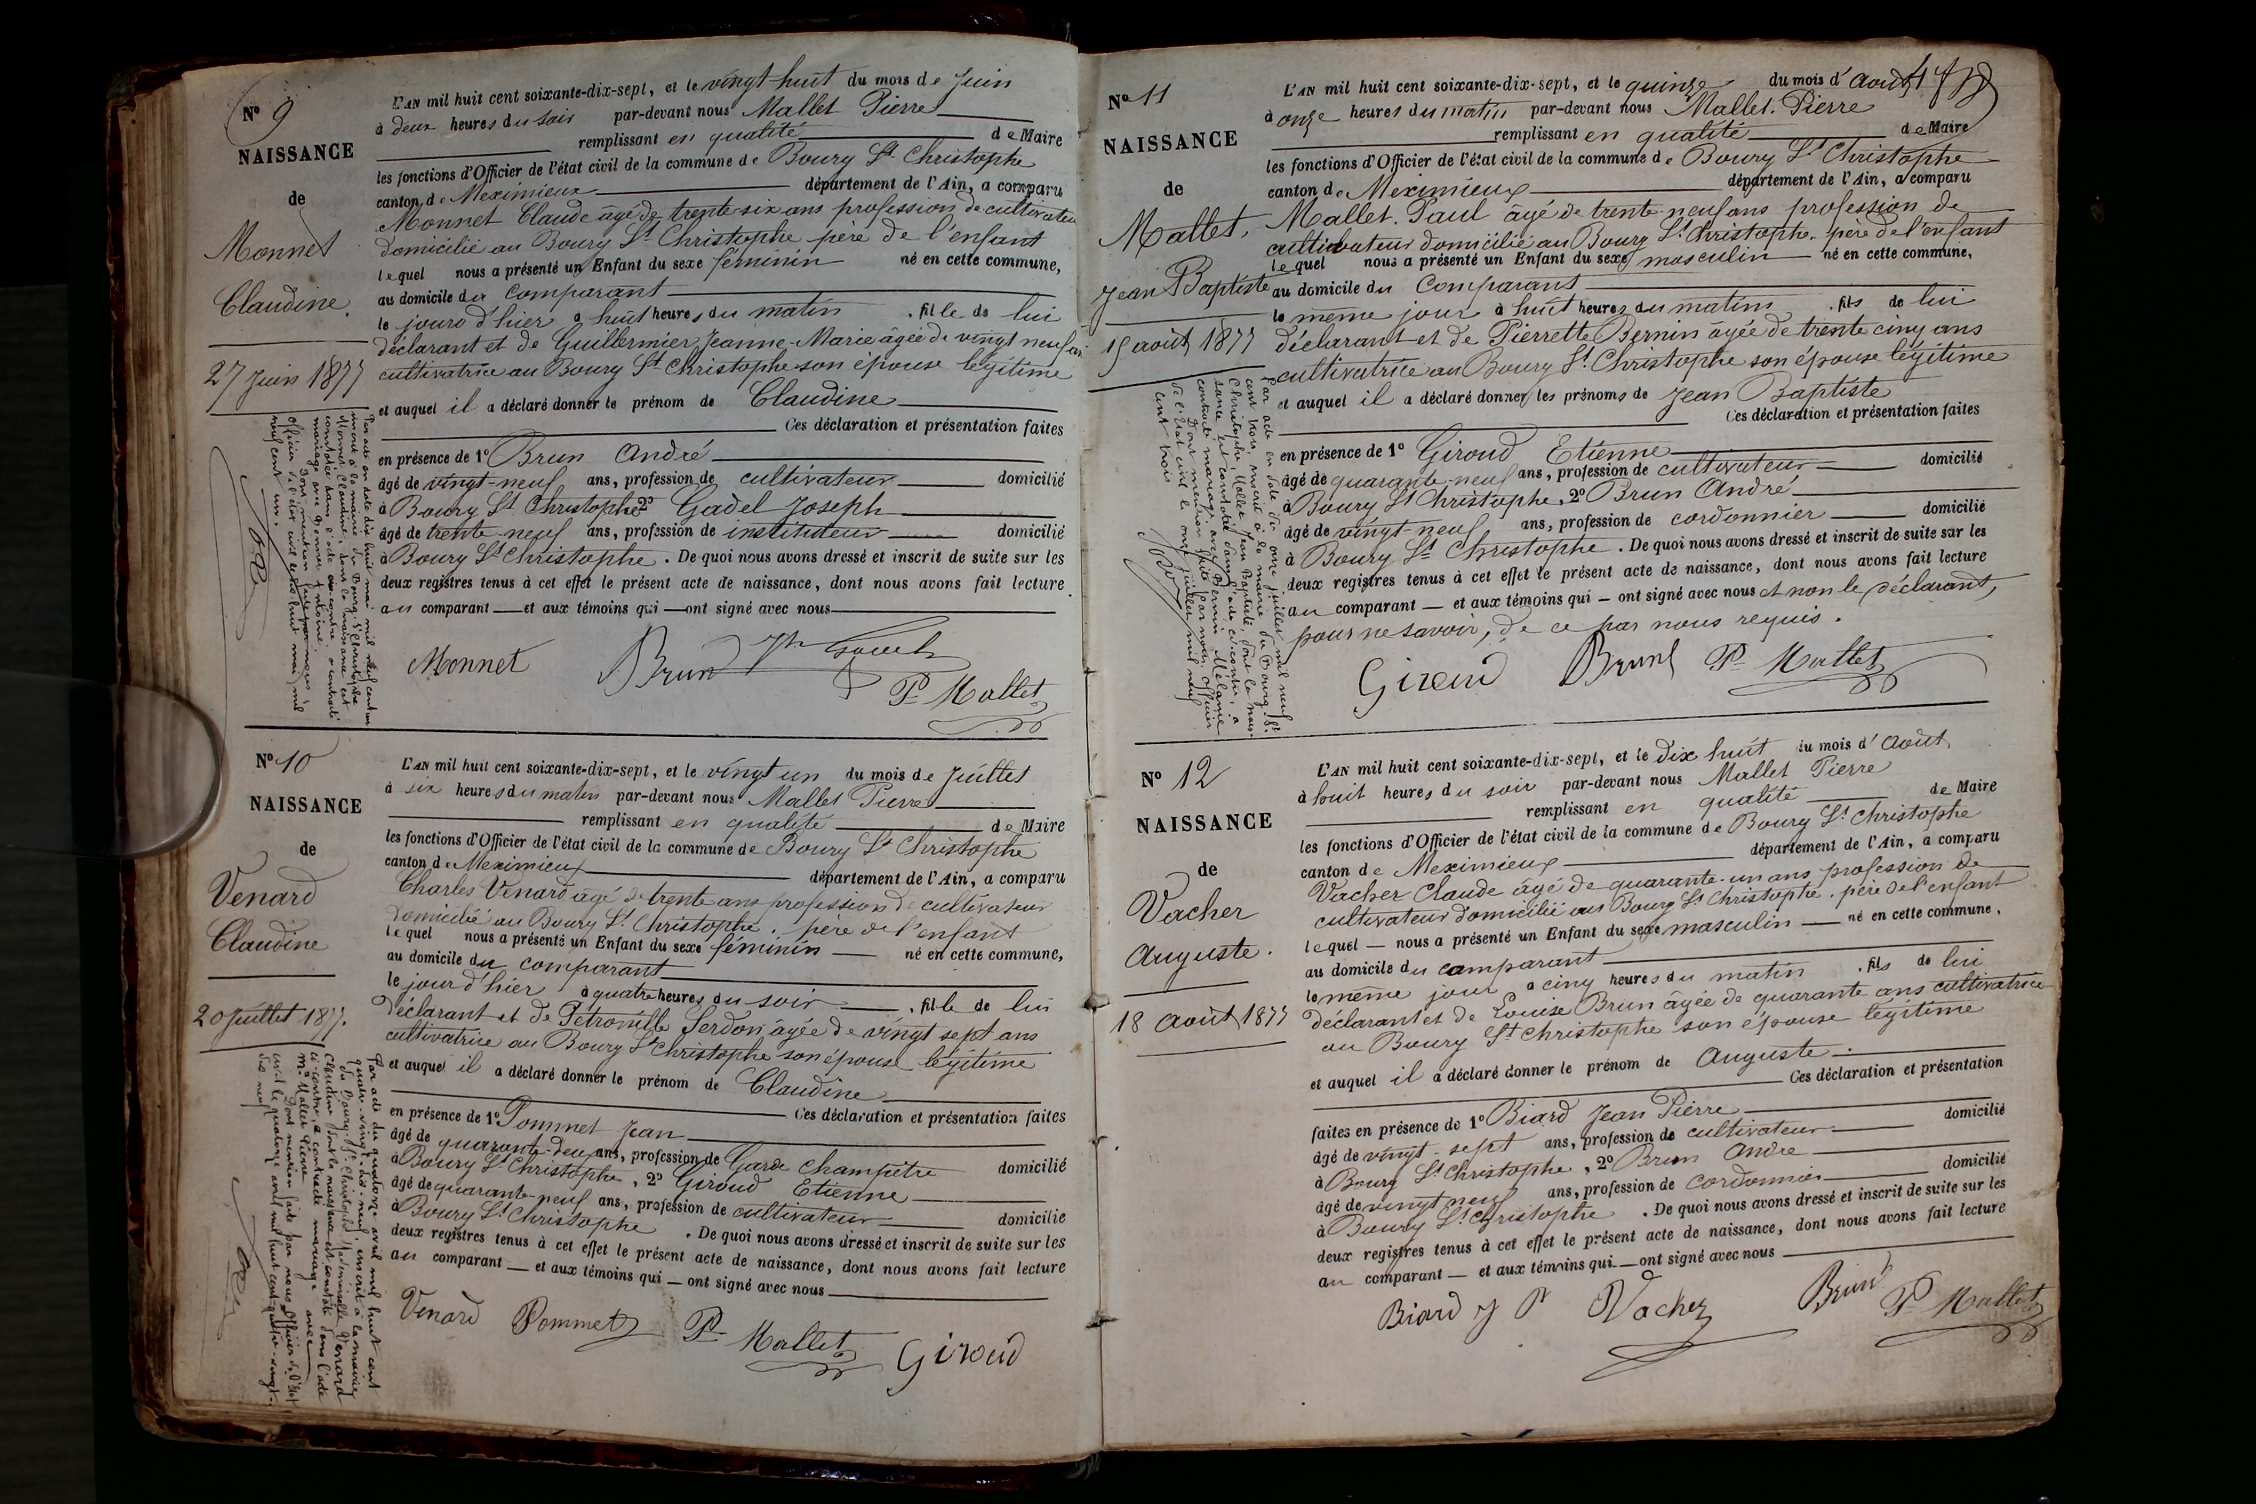 Nº 9
NAISSANCE
de
Monnet
Claudine.
27 Juin 1877
L'AN mil huit cent soixante-dix-sept, et le vingt-huit du mois de Juin
à deux heures du soir par-devant nous Mallet Pierre
remplissant en qualité de Maire
les fonctions d'Officier de l'état civil de la commune de Bourg St Christophe
canton de Meximieux département de l'Ain, a comparu
Monnet Claude âgé de trente-six ans profession de cultivateur
domicilié au Bourg St Christophe père de l'enfant
lequel nous a présenté un Enfant du sexe féminin né en cette commune,
au domicile du comparant
le jour d'hier à huit heures du matin, fille de lui
déclarant et de Guillermier Jeanne-Marie âgée de vingt neuf ans
cultivatrice au Bourg St Christophe son épouse légitime
et auquel il a déclaré donner le prénom de Claudine
Ces déclaration et présentation faites
en présence de 1º Brun André
âgé de vingt-neuf ans, profession de cultivateur domicilié
à Bourg St Christophe 2º Gadel Joseph
âgé de trente-neuf ans, profession de instituteur domicilié
à Bourg St Christophe. De quoi nous avons dressé et inscrit de suite sur les
deux registres tenus à cet effet le présent acte de naissance, dont nous avons fait lecture
au comparant — et aux témoins qui — ont signé avec nous
Monnet Brun P. Mallet
Par acte en date dix huit mai mil neuf cent un
inscrit à la mairie du Bourg St Christophe
Monnet Claudine, dont la naissance est
constatée dans l'acte ci-contre a contracté
mariage avec Antoine.
Dont mention faite par nous
officier de l'état civil le dix huit mai mil
neuf cent un.
Nº 10
NAISSANCE
de
Venard
Claudine
20 Juillet 1877.
L'AN mil huit cent soixante-dix-sept, et le vingt un du mois de Juillet
à six heures du matin par-devant nous Mallet Pierre
remplissant en qualité de Maire
les fonctions d'Officier de l'état civil de la commune de Bourg St Christophe
canton de Meximieux département de l'Ain, a comparu
Charles Venard âgé de trente ans profession de cultivateur
domicilié au Bourg St Christophe. père de l'enfant
lequel nous a présenté un Enfant du sexe féminin — né en cette commune,
au domicile du comparant
le jour d'hier à quatre heures du soir, fille de lui
déclarant et de Petronille Serdon âgée de vingt sept ans
cultivatrice au Bourg St Christophe son épouse légitime
et auquel il a déclaré donner le prénom de Claudine
Ces déclaration et présentation faites
en présence de 1º Pommet Jean
âgé de quarante-deux ans, profession de Garde champêtre domicilié
à Bourg St Christophe, 2º Giroud Etienne
âgé de quarante-neuf ans, profession de cultivateur domicilié
à Bourg St Christophe. De quoi nous avons dressé et inscrit de suite sur les
deux registres tenus à cet effet le présent acte de naissance, dont nous avons fait lecture
au comparant — et aux témoins qui — ont signé avec nous
Venard Pommet P. Mallet Giroud
Par acte du quatorze avril mil huit cent
quatre-vingt-dix-neuf, inscrit à la mairie
du Bourg-St-Christophe, Mademoiselle Venard
Claudine dont la naissance est constatée dans l'acte
ci-contre, a contracté mariage avec
Mr Mallet Pierre
Dont mention faite par nous Officier de l'état
civil le quatorze avril mil huit cent quatre-vingt-
dix neuf
Nº 11
NAISSANCE
de
Mallet,
Jean Baptiste
15 août 1877
L'AN mil huit cent soixante-dix-sept, et le quinze du mois d'août
à onze heures du matin par-devant nous Mallet. Pierre
remplissant en qualité de Maire
les fonctions d'Officier de l'état civil de la commune de Bourg St Christophe
canton de Meximieux département de l'Ain, a comparu
Mallet. Paul âgé de trente-neuf ans profession de
cultivateur domicilié au Bourg St Christophe. père de l'enfant
lequel nous a présenté un Enfant du sexe masculin — né en cette commune,
au domicile du comparant
le même jour à huit heures du matin, fils de lui
déclarant et de Pierrette Bernin âgée de trente cinq ans
cultivatrice au Bourg St Christophe son épouse légitime
et auquel il a déclaré donner les prénoms de Jean Baptiste
Ces déclaration et présentation faites
en présence de 1º Giroud Etienne
âgé de quarante-neuf ans, profession de cultivateur domicilié
à Bourg St Christophe, 2º Brun André
âgé de vingt-neuf ans, profession de cordonnier domicilié
à Bourg St Christophe. De quoi nous avons dressé et inscrit de suite sur les
deux registres tenus à cet effet le présent acte de naissance, dont nous avons fait lecture
au comparant — et aux témoins qui — ont signé avec nous et non le déclarant,
pour ne savoir, de ce par nous requis.
Giroud Brun P. Mallet
Par acte en date du onze juillet mil neuf
cent trois, inscrit à la mairie du Bourg St
Christophe, Mallet Jean Baptiste, dont la nais-
sance est constatée dans l'acte ci-contre, a
contracté mariage avec Bernin Mélanie
Dont mention faite par nous, Officier
de l'état civil le onze juillet mil neuf
cent trois
Nº 12
NAISSANCE
de
Vacher
Auguste.
18 août 1877
L'AN mil huit cent soixante-dix-sept, et le dix huit du mois d'août
à huit heures du soir par-devant nous Mallet Pierre
remplissant en qualité de Maire
les fonctions d'Officier de l'état civil de la commune de Bourg St Christophe
canton de Meximieux département de l'Ain, a comparu
Vacher Claude âgé de quarante-un ans profession de
cultivateur domicilié au Bourg St Christophe. père de l'enfant
lequel — nous a présenté un Enfant du sexe masculin — né en cette commune,
au domicile du comparant
le même jour à cinq heures du matin, fils de lui
déclarant et de Louise Brun âgée de quarante ans cultivatrice
au Bourg St Christophe son épouse légitime
et auquel il a déclaré donner le prénom de Auguste.
Ces déclaration et présentation
faites en présence de 1º Biard Jean Pierre
âgé de vingt-sept ans, profession de cultivateur domicilié
à Bourg St Christophe, 2º Brun André
âgé de vingt neuf ans, profession de cordonnier domicilié
à Bourg St Christophe. De quoi nous avons dressé et inscrit de suite sur les
deux registres tenus à cet effet le présent acte de naissance, dont nous avons fait lecture
au comparant — et aux témoins qui — ont signé avec nous
Biard J P Vacher Brun P. Mallet